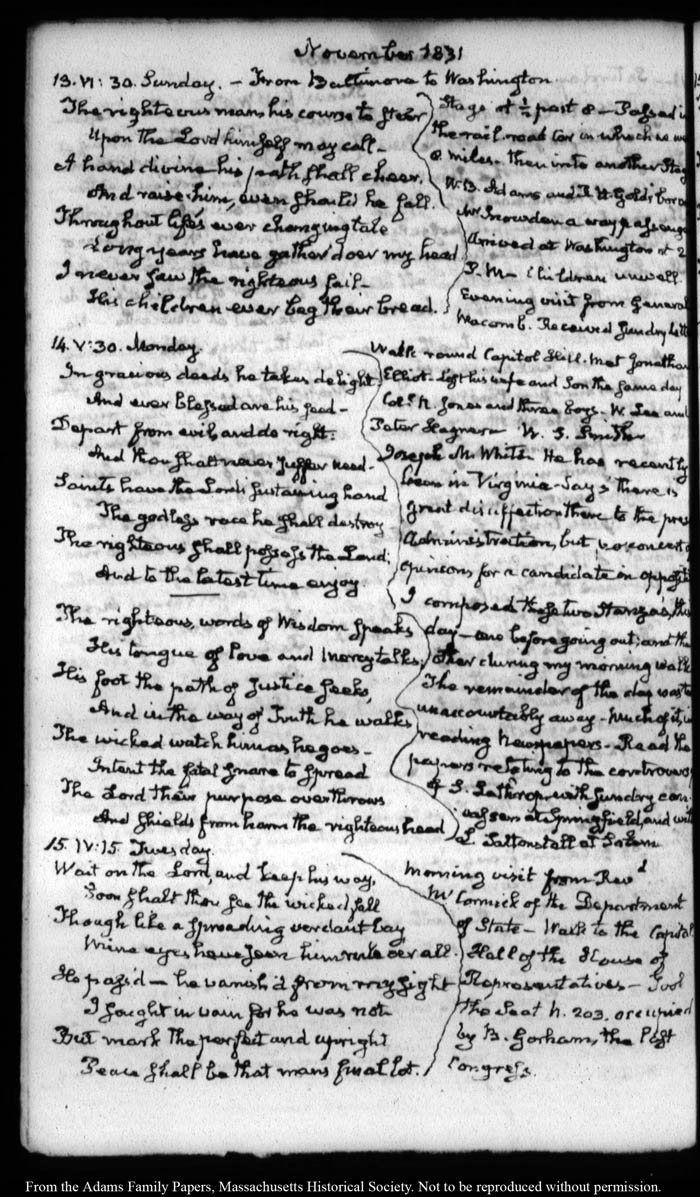 November 1831
13. VI: 30. Sunday. – From Baltimore to Washington.
The righteous man his course to steer
Upon the Lord himself may call –
A hand divine his path shall cheer,
And raise him, even should he fall.
Throughout life's ever changing tale
Long years have gather'd o'er my head
I never saw the righteous fail –
His children ever beg their bread.
Stage at ½ past 8 – Passed i
the rail-road car in which we we
8 miles. then into another Stag
W. B. Adams and
Mr Snowden a way passenge
Arrived at Washington at 2
P.M – Children unwell.
Evening visit from General
Macomb. Received sundry lett
14. V: 30. Monday.
In gracious deeds he takes delight
And ever blessed are his seed –
Depart from evil and do right.
And thou shalt never suffer need –
Saints have the Lord's sustaining hand
The godless race he shall destroy
The righteous shall possess the Land;
And to the latest time enjoy
The righteous, words of Wisdom speaks
His tongue of Love and Mercy talks;
His foot the path of Justice seeks,
And in the way of Truth he walks
The wicked watch him as he goes –
Intent the fatal snare to spread
The Lord their purpose overthrows
And shields from harm the righteous head
Walk round Capitol Hill. Met Jonathan
Elliot. Lost his wife and Son the same day
Col. R. Jones and three boys – W. Lee and
Peter Hagner – W. S. Smith
Joseph M. White. He has recently
been in Virginia. Says there is
great disaffection there to the pres
Administration, but no concert o
opinions for a candidate in oppositi
I composed these two Stanza's, this
day – one before going out; and the
other during my morning walk
The remainder of the day waste
unaccountably away – Much of it, in
reading Newspapers – Read the
papers relating to the controvers
of S. Lathrop, with sundry
at Springfield, and with
L. Saltonstall at Salem
15. IV: 15. Tuesday.
Wait on the Lord, and keep his way,
Soon shalt thou see the wicked fall
Though like a spreading verdant bay
Mine eyes have seen him rule oer all.
He pass'd – he vanish'd from my sight
I sought in vain for he was not
But mark the perfect and upright
Peace shall be that mans final lot.
Morning visit from Revd
McCormick of the Department
of State – Walk to the Capitol
Hall of the House of
Representatives – Took
the Seat N. 203. occupied
by B. Gorham, the last
Congress.
From the Adams Family Papers, Massachusetts Historical Society. Not to be reproduced without permission.